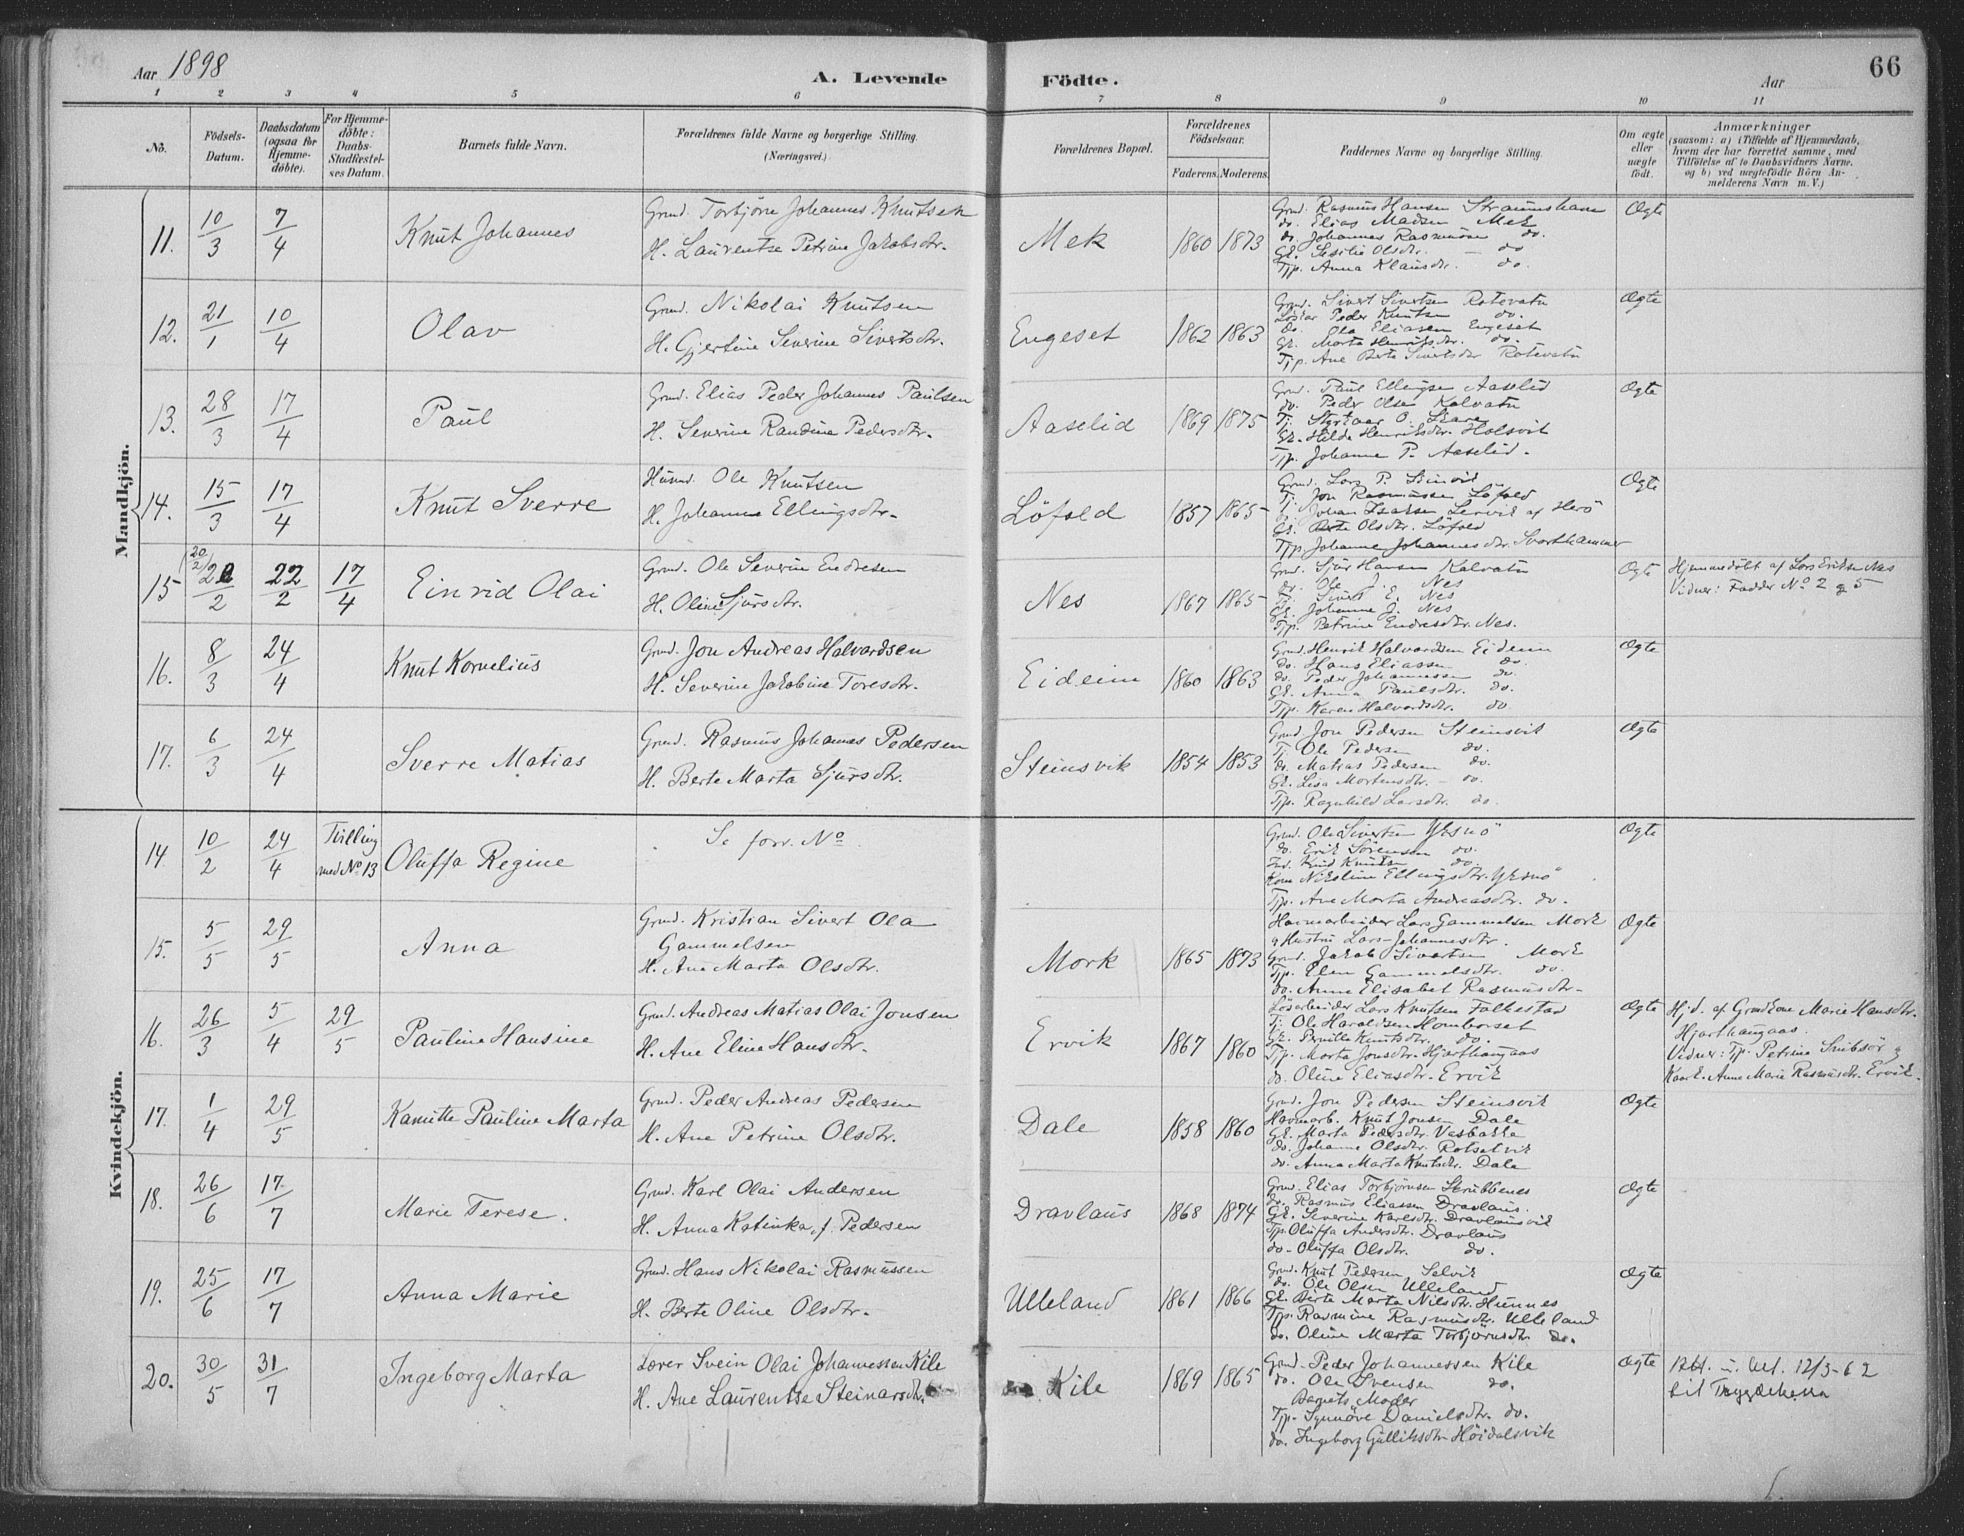 Aar 1898
A. Levende
Födte.
Aar
66
1 2 3 4 5 6 7 8 9 10 11
No.
Födsels-Datum.
Daabsdatum (ogsaa for Hjemme-döbte).
For Hjemme-döbte: Daabs-Stadfæstel-ses Datum.
Barnets fulde Navn.
Forældrenes fulde Navne og borgerlige Stilling. (Næringsvei.)
Forældrenes Bopæl.
Forældrenes Födselsaar.
Faderens. Moderens.
Faddernes Navne og borgerlige Stilling.
Om ægte eller uægte födt.
Anmærkninger
(saasom: a) i Tilfælde af Hjemmedaab, hvem der har forrettet samme, med Tilföielse af to Daabsvidners Navne, og b) ved uægtefödte Börn An-melderens Navn m. V.)
Mandkjön.
11. 10/3 7/4 Knut Johannes
Grmd. Torbjørn Johannes Knutsen
H. Laurentse Petrine Jakobsdtr.
Mek 1860 1873
Grmd. Rasmus Hansen Straumshavn
do. Elias Madsen Mek
do. Johannes Rasmussen do.
Gk. Sesilie Olsdtr. — do
Tjp. Anna Klausdtr. — do.
Ægte
12. 21/1 10/4 Olav
Grmd. Nikolai Knutsen
H. Gjertine Severine Sivertsdtr.
Engeset 1862 1863
Grmd. Sivert Sivertsen Rotevatn
Löskar Peder Knutsen do.
do. Ola Eliassen Engeset
Gk. Marta Henriksdtr. do.
Tjp. Ane Berte Sivertsdtr Rotevatn
Ægte
13. 28/3 17/4 Paul
Grmd. Elias Peder Johannes Paulsen
H. Severine Randine Pedersdtr.
Aaselid 1869 1875
Grmd. Paul Ellingsen Aaselid
do. Peder Olsen Kalvatn
Tj. Styrkaar O. Skare
Gk. Hilda Henriksdtr. Holsvik
Tjp. Johanne P. Aaselid.
Ægte
14. 15/3 17/4 Knut Sverre
Husmd. Ole Knutsen
H. Johanne Ellingsdtr.
Löfold 1857 1865
Grmd. Lars P.
Tj. Jon Rasmussen Löfold
do. Johan Isaksen Lervik af Herö
Gk. Berte Olsdtr. Löfold
Tjp. Johanne Johannesdtr. Svorthammer
Ægte
15 (20/2) 2/2 22/2 17/4 Einrid Olai
Grmd. Ole Severin Endresen
H. Oline Sjursdtr.
Nes 1867 1865
Grmd. Sjur Hansen Kalvatn
do. Ole J. Nes
Tj. Sivert E. Nes
Gk. Johanne J. Nes
Tjp. Petrine Endresdtr. Nes.
Ægte
Hjemmedöbt af Lars Eriksen Nes
Vidner: Fadder No 2 og 5
16. 8/3 24/4 Knut Kornelius
Grmd. Jon Andreas Halvardsen
H. Severine Jakobine Toresdtr.
Eideim 1860 1863
Grmd. Henrik Halvardsen Eideim
do. Hans Eliassen do.
do. Peder Johannessen do.
Gk. Anna Paulsdtr. do.
Tjp. Karen Halvardsdtr. do
Ægte
17. 6/3 24/4 Sverre Matias
Grmd. Rasmus Johannes Pedersen
H. Berte Marta Sjursdtr.
Steinsvik 1854 1853
Grmd Jon Pedersen Steinsvik
Tj. Ole Pedersen do.
do. Matias Pedersen do.
Gk. Lisa Mortensdtr. — do.
Tjp. Ragnhild Larsdtr. do.
Ægte
Kvindekjön.
14. 10/2 24/4 Tvilling med No 13 Oluffa Regine
Se forr. No
Grmd. Ole Sivertsen Yksnö
do. Erik Sörensen do.
Ind. Knud Knutsen do.
Kone Nikoline Ellingsdtr. Yksnö
Tjp. Ane Marta Andreasdtr. do.
Ægte
15. 5/5 29/5 Anna
Grmd. Kristian Sivert Ola
Gammelsen
H. Ane Marta Olsdtr.
Mork 1865 1873
Havnarbeider Lars Gammelsen Mork
og Hustru Lars-Johannesdtr.
Grmd. Jakob Sivertsen Mork
Tjp. Elen Gammelsdtr. do.
do. Anne Elisabet Rasmusdtr.
Ægte
16. 26/3 5/4 29/5 Pauline Hansine
Grmd. Andreas Matias Olai Jonsen
H. Ane Eline Hansdtr.
Ervik 1867 1860
Lösarbeider Lars Knutsen Folkestad
Tj. Ole Haraldsen Homborset
Gk. Pernille Knutsdtr. do.
Tjp. Marta Jonsdtr. Hjorthaugaas
do. Oline Eliasdtr. Ervik
Ægte
Hjd. af Grmdkone Marie Hansdtr.
Hjorthaugaas.
Vidner: Tjp. Petrine Snibsör og
Kaark. Anne Marie Rasmusdtr. Ervik.
17. 1/4 29/5 Kamitte Pauline Marta
Grmd. Peder Andreas Pedersen
H. Ane Petrine Olsdtr.
Dale 1858 1860
Grmd. Jon Pedersen Steinsvik
Havnarb. Knut Jonsen Dale
Gk. Marta Pedersdtr. Vasbakke
do. Johanne Olsdtr. Rotsetvik
do. Anna Marta Knutsdtr. Dale
Ægte
18. 26/6 17/7 Marie Terese.
Grmd. Karl Olai Andersen
H. Anna Katinka, f. Pedersen
Dravlaus 1868 1874
Grmd. Elias Torbjörnsen Skrubbenes
do. Rasmus Eliassen Dravlaus.
Gk. Severine Karlsdtr. Dravlausvik
Tjp. Oluffa Andersdtr. Dravlaus
do. Oluffa Olsdtr. do.
Ægte
19. 25/6 17/7 Anna Marie
Grmd. Hans Nikolai Rasmussen
H. Berte Oline Olsdtr.
Ulleland 1861 1866
Grmd. Knut Pedersen Selvik
do. Ole Olsen Ulleland
Gk. Berte Marta Nilsdtr. Hunnes
Tjp. Rasmine Rasmusdtr. Ulleland
do. Oline Marta Torbjörnsdtr do.
Ægte
20. 30/5 31/7 Ingeborg Marta
Lærer Svein Olai Johannessen Kile
H. Ane Laurentse Steinarsdtr.
Kile 1869 1865
Grmd. Peder Johannessen Kile
do. Ole Svensen do.
Barnets Moder
Tjp. Synnöve Danielsdtr. do.
do. Ingeborg Gulliksdtr Höidalsvik
Ægte
Att. u. 12/3-62
til Trygdekassa